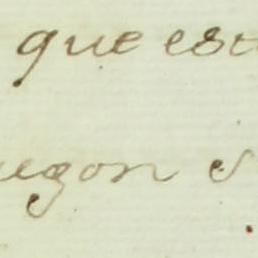 que est
egon s